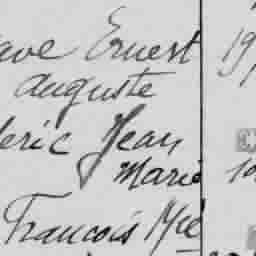 ave Ernest
auguste
deric Jean
Marie
Francois Mie
19
10